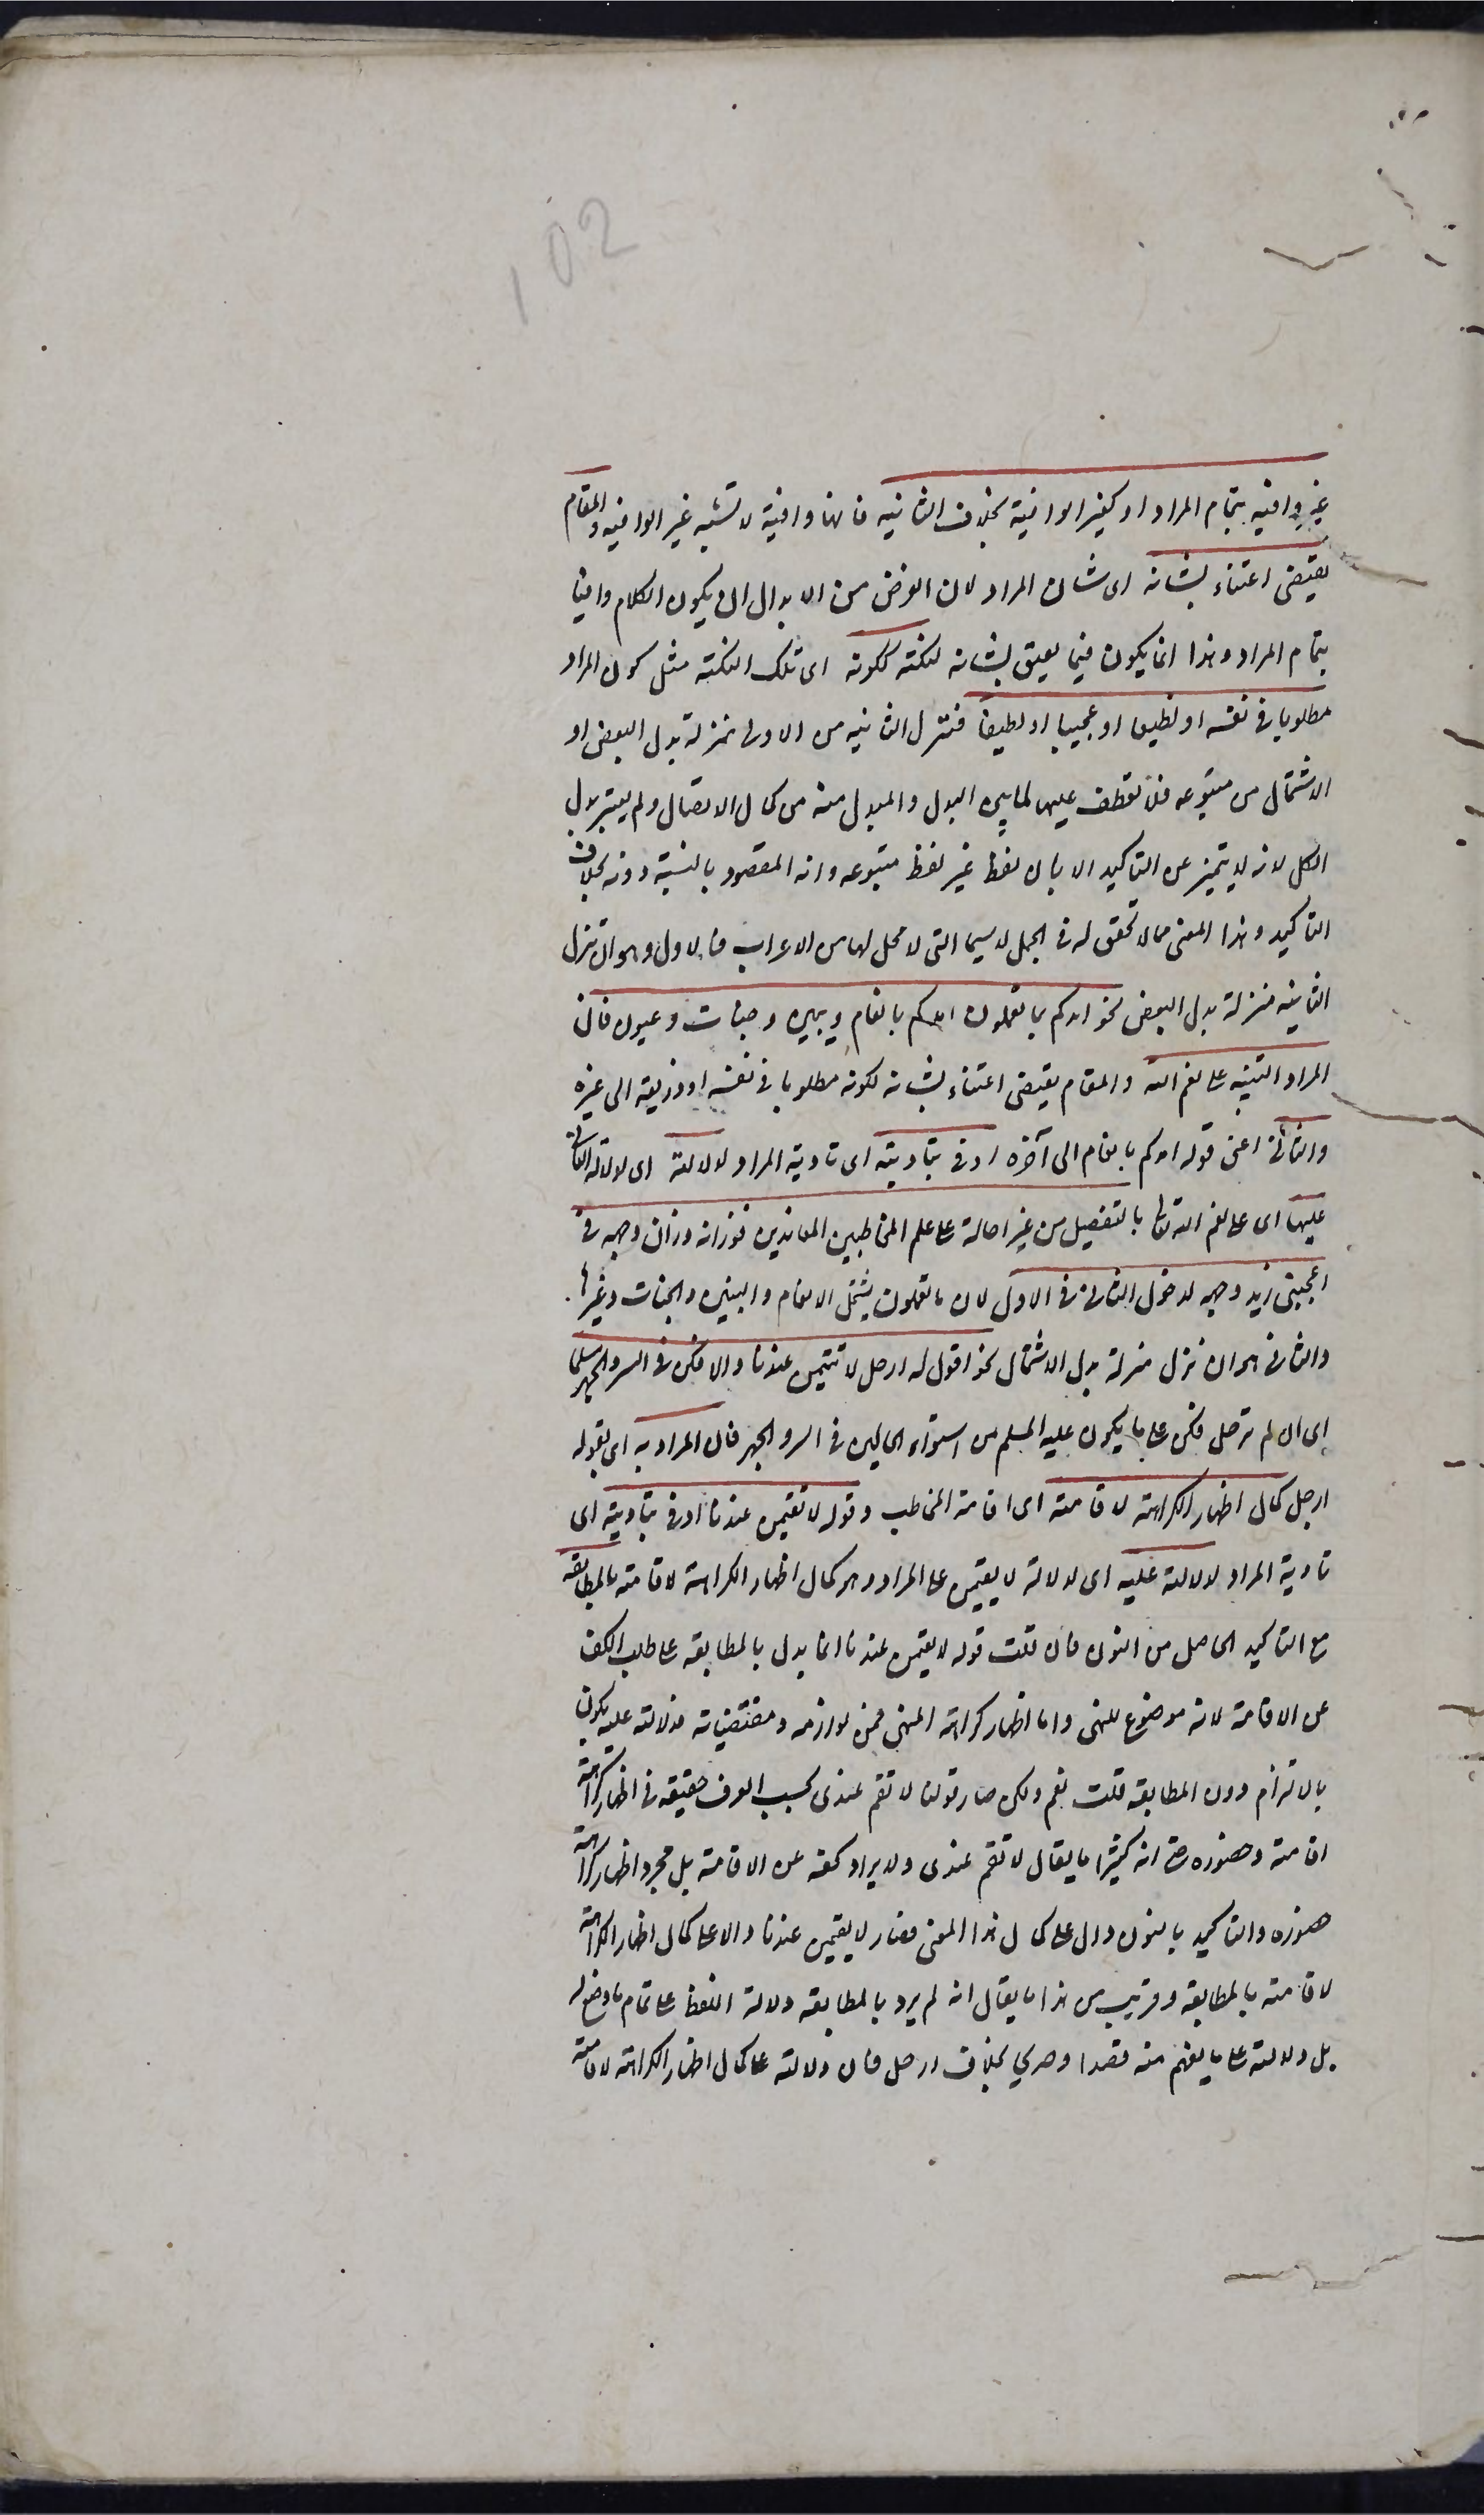 102
غير وافيه بتمام المراد او كغير الوافية بخلاف الثانيه فانها وافية لا تشبه غير الوافيه والمقام
يقتضى اعتناء بشانه اى شان المراد لان الغرض من الابدال ان يكون الكلام وافيا
بتمام المراد وهذا انما يكون فيما يعتنى بشانه لنكتة ككونه اى تلك النكتة مثل كون المراد
مطلوبا فى نفسه او فظيعا او عجيبا او لطيفا فتنزل الثانيه من الاولى بمنزلة بدل البعض او
الاشتمال من متبوعه فلا تعطف عليها لما بين البدل والمبدل منه من كمال الاتصال ولم يعتبر بدل
الكل لانه لا يتميز عن التاكيد الا بان لفظه غير لفظ متبوعه وانه المقصود بالنسبة دونه بخلاف
التاكيد وهذا المعنى مما لا تحقق له فى الجمل لا سيما التى لا محل لها من الاعراب فالاول وهو ان تنزل
الثانيه منزلة بدل البعض نحو امدكم بما تعلمون امدكم بانعام وبنين وجنات وعيون فان
المراد التنبيه على نعم الله والمقام يقتضى اعتناء بشانه لكونه مطلوبا فى نفسه او ذريعة الى غيره
والثانى اعنى قوله امدكم بانعام الى آخره اوفى بتاديته اى تادية المراد لدلالته اى لدلالة الثانى
عليها اى على نعم الله تعالى بالتفصيل من غير احالة على علم المخاطبين المعاندين فوزانه وزان وجهه فى
اعجبنى زيد وجهه لدخول الثانى فى الاول لان ما تعلمون يشمل الانعام والبنين والجنات وغيرها.
والثانى هو ان تنزل منزلة بدل الاشتمال نحو اقول له ارحل لا تقيمن عندنا والا فكن فى السر والجهر مسلما
اى ان لم ترحل فكن على ما يكون عليه المسلم من استواء الحالين فى السر والجهر فان المراد به اى بقوله
ارحل كمال اظهار الكراهة لاقامته اى اقامة المخاطب وقوله لا تقيمن عندنا اوفى بتاديته اى
تادية المراد لدلالته عليه اى لدلالة لا يقيمن على المراد وهو كمال اظهار الكراهة لاقامته بالمطابقه
مع التاكيد الحاصل من النون فان قلت قوله لا يقيمن عندنا انما يدل بالمطابقه على طلب الكف
عن الاقامة لانه موضوع للنهى واما اظهار كراهة المنهى فمن لوازمه ومقتضياته فدلالته عليه يكون
بالالتزام دون المطابقه قلت نعم ولكن صار قولنا لا تقم عندى بحسب العرف حقيقه فى اظهار كراهة
اقامته وحضوره حتى انه كثيرا ما يقال لا تقم عندى ولا يراد كفه عن الاقامة بل مجرد اظهار كراهة
حضوره والتاكيد بالنون دال على كمال هذا المعنى فصار لا يقيمن عندنا دالا على كمال اظهار الكراهة
لاقامته بالمطابقه وقريب من هذا ما يقال انه لم يرد بالمطابقه دلالة اللفظ على تمام ما وضع له
بل دلالته على ما يفهم منه قصدا وصريحا بخلاف ارحل فان دلالته على كمال اظهار الكراهة لاقامته